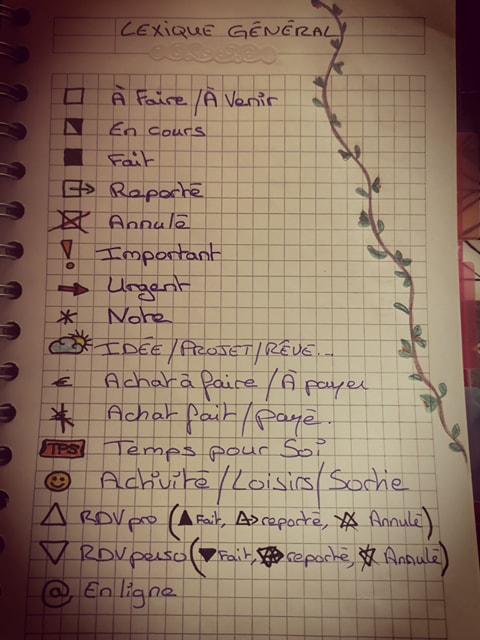 LEXIQUE GÉNÉRAL
À Faire / À Venir
En cours
Fait
Reporté
Annulé
! Important
Urgent
* Note
IDÉE / PROJET / RÊVE...
€ Achat à faire / À payer
Achat fait / payé.
TPS Temps pour Soi
Activité / Loisirs / Sortie
△ RDV pro (▲ Fait, reporté, Annulé)
▽ RDV perso (▼ Fait, reporté, Annulé)
@ En ligne